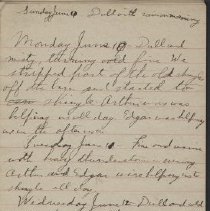 Sunday June 9 Dull with
Monday June 10 Dull and
misty turning cold fine We
stripped part of the old shingle
off the barn and started to
shingle Arthur was
helping us all day. Edgar was helping
us in the afternoon
Tuesday June 11 Fine and warm
with heavy thunderstorm evening
Arthur and Edgar were helping us to
shingle all day
Wednesday June 12 Dull and cold